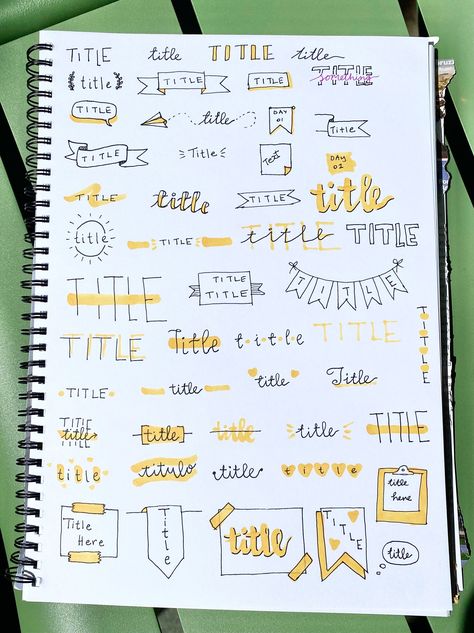 TITLE title TITLE title
title TITLE TITLE TITLE
something
TITLE title DAY 01 Title
TITLE Title Text DAY 01
TITLE title TITLE title
title TITLE title TITLE
TITLE TITLE TITLE
TITLE
TITLE Title title TITLE TITLE
TITLE title title Title
TITLE
title title title title TITLE
TITLE
title titulo title title title here
Title Here Title title TITLE
title